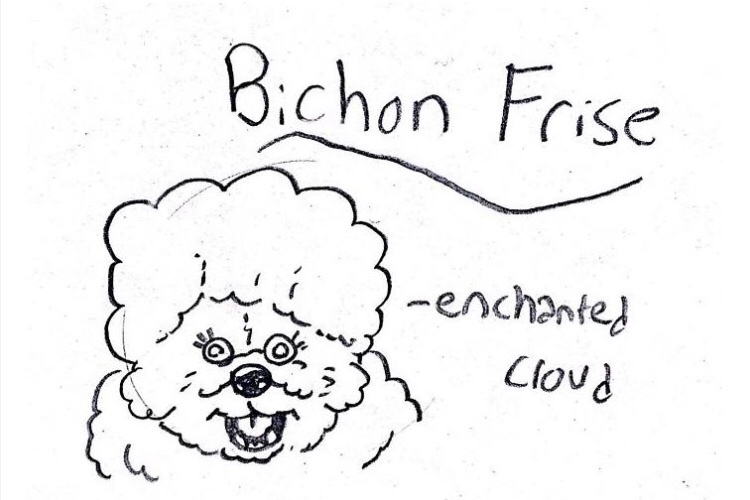 Bichon Frise
-enchanted
cloud